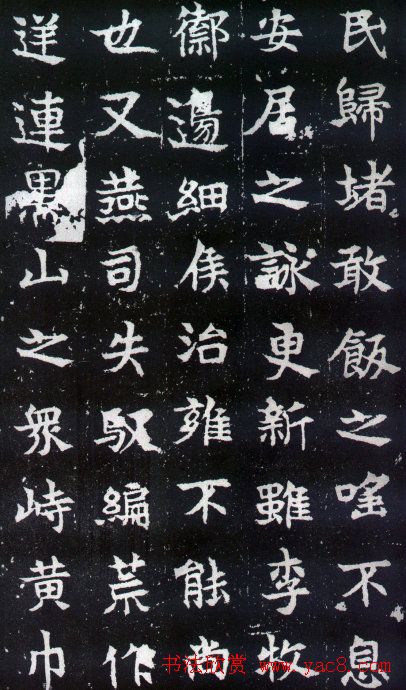 民歸堵敢飯之不息
安居之詠更新雖李牧
禦邊細侯治雍不能尚
也又燕司失馭編荒作
逆連黑山之衆峙黃巾
书法欣赏 www.yac8.com